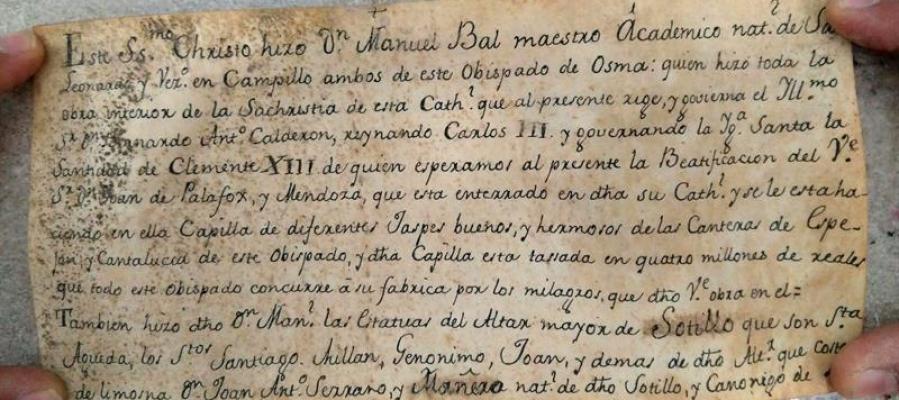 Este Ss.mo Christo hizo Dn. Manuel Bal maestro Academico nat.l de Sn
Leonardo y Vezo. en Campillo ambos de este Obispado de Osma: quien hizo toda la
obra interior de la Sachristia de esta Cath.l que al presente rige, y goviena el Ill.mo
Sr. Dn. Bernardo Anto. Calderon, reynando Carlos III. y governando la Yga. Santa la
Santidad de Clemente XIII de quien esperamos al presente la Beatificacion del Ve.
Sr. Dn. Joan de Palafox, y Mendoza, que esta enterrado en dha su Cath.l y se le esta ha-
ciendo en ella Capilla de diferentes Jaspes buenos, y hermosos de las Canteras de Espe-
jon, y Cantalucia de este Obispado, y dha Capilla esta tasada en quatro millones de reales
que todo este Obispado concurre a su fabrica por los milagros, que dho Ve. obra en el=
Tambien hizo dho Dn. Man.l las Estatuas del Altar mayor de Sotillo que son Sta.
Agueda, los Stos Santiago. Millan, Geronimo, Joan, y demas de dho que
de limosna Dn. Joan Anto. Serrano, y nat.l de dho Sotillo, y Canonigo de